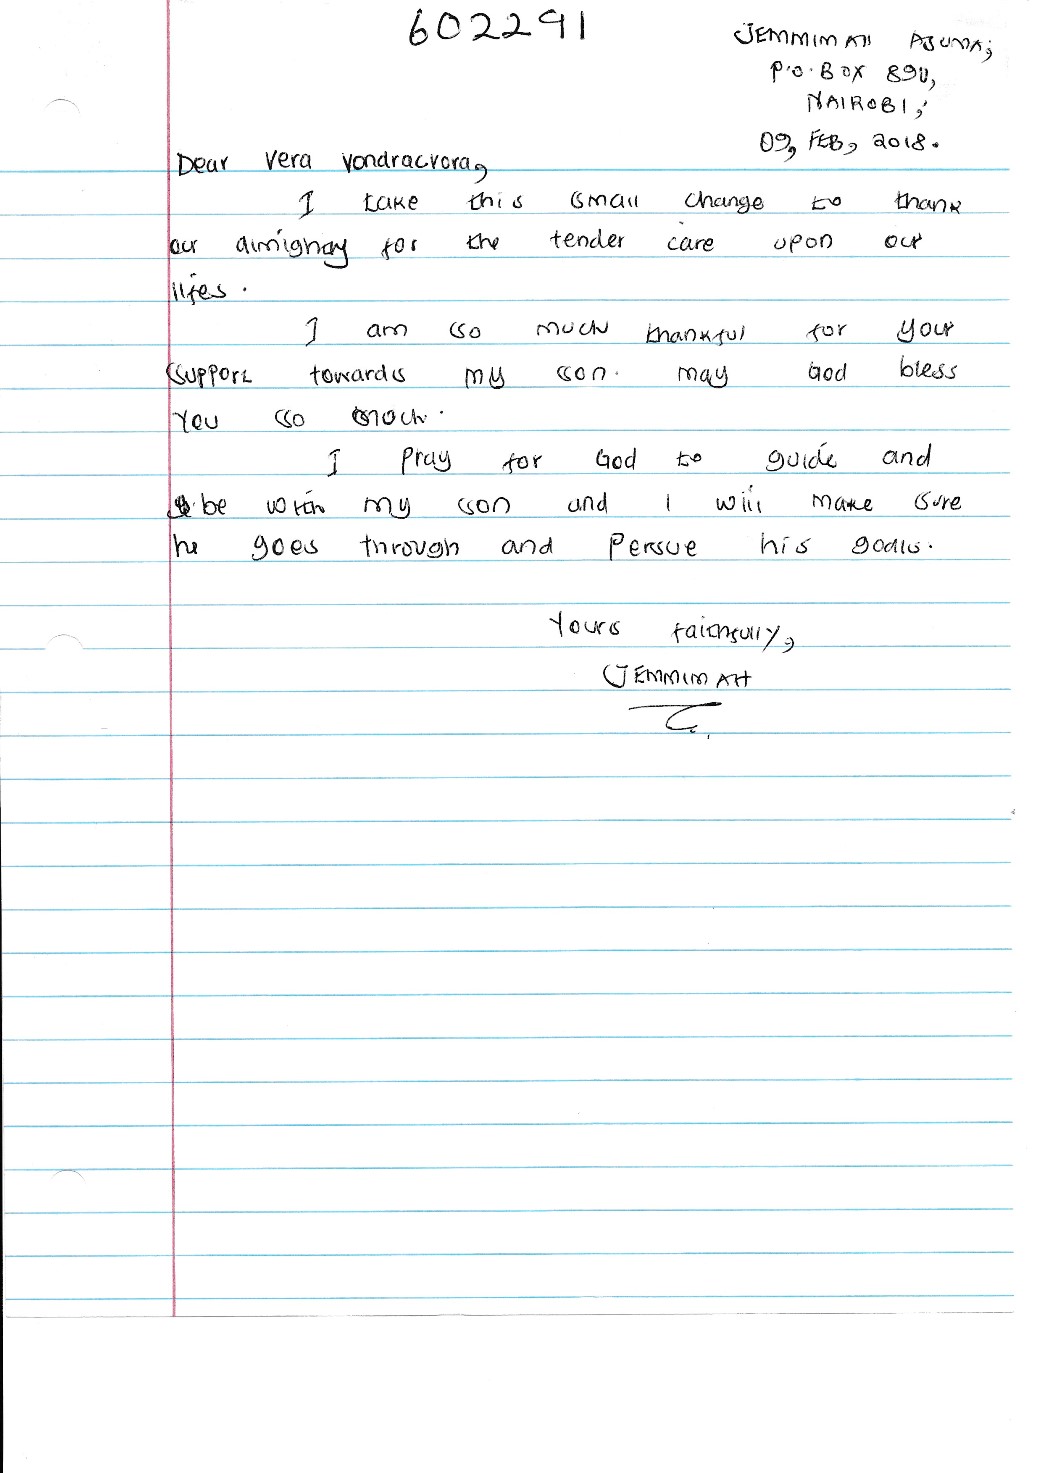 602291
JEMMIMAH AJUMA;
P.O. BOX 890,
NAIROBI,
09, FEB, 2018.
Dear Vera Vondracvora,
I take this small change to thank
our almighay for the tender care upon our
lifes.
I am so much thankful for your
support towards my son. may God bless
you so much.
I pray for God to guide and
be with my son and I will make sure
he goes through and persue his goals.
Yours faithfully,
JEMMIMAH